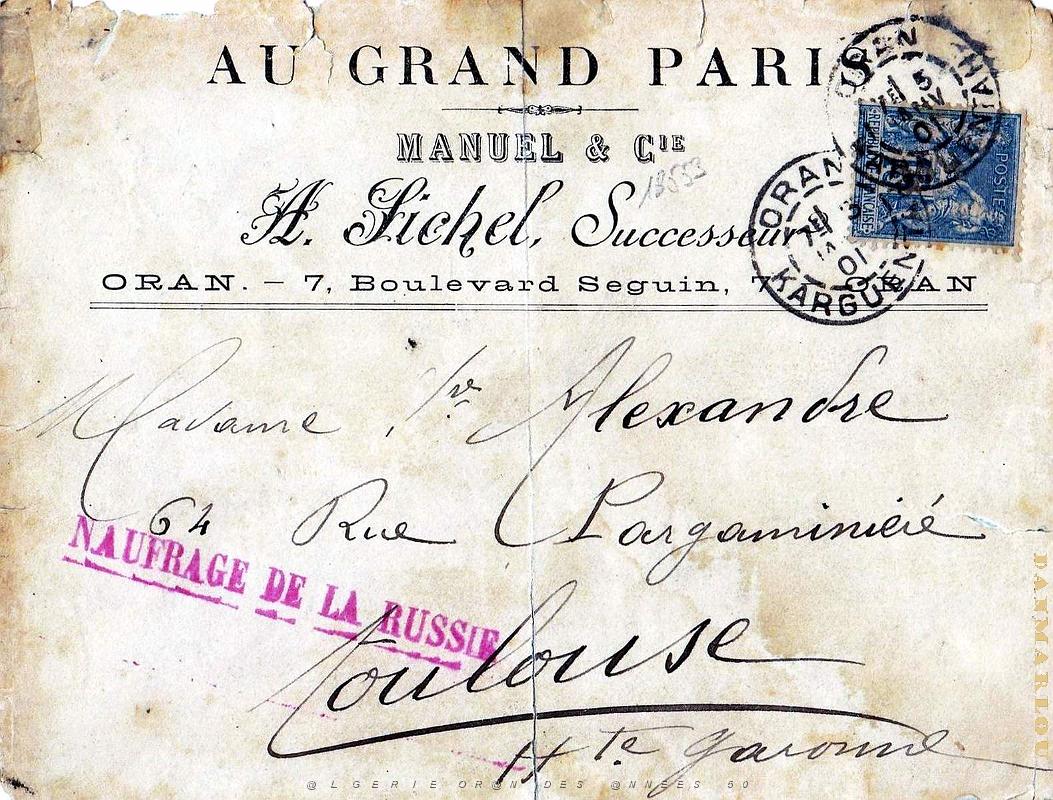 AU GRAND PARIS
MANUEL & CIE
18553
A. Fichel, Successeur
ORAN. – 7, Boulevard Seguin, 7. – ORAN
ORAN
5
01
POSTE
REPUBLIQUE FRANÇAISE
ORAN
01
KARGUENTAH
Madame Vve Alexandre
64 Rue Pargaminiéré
NAUFRAGE DE LA RUSSIE
Toulouse
Hte Garonne
PAHMARLOU
@LGERIE ORAN DES @NNEES 50